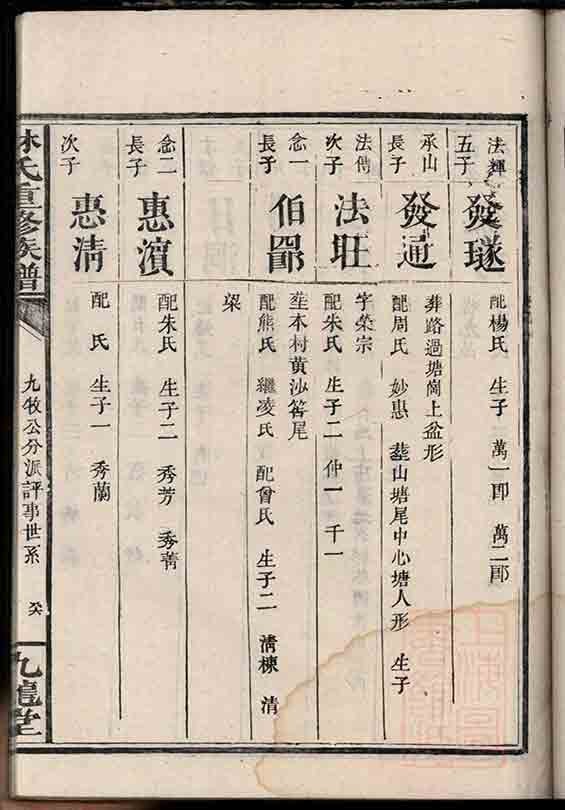 法輝
五子
發璲
配楊氏 生子二 萬一郎 萬二郎
承山
長子
發通
葬路過塘崗上盆形
配周氏 妙惠 葬山塘尾中心塘人形 生子
法傳
次子
法旺
字榮宗
配朱氏 生子二 仲一 千一
念一
長子
伯
葬本村黄沙窩尾
配熊氏 繼凌氏 配曾氏 生子二 淸棟 清
樑
念二
長子
惠濵
配朱氏 生子二 秀芳 秀菁
次子
惠清
配 氏 生子一 秀蘭
林氏重修族譜
九牧公分派評事世系
癸
九龍堂
上海圖